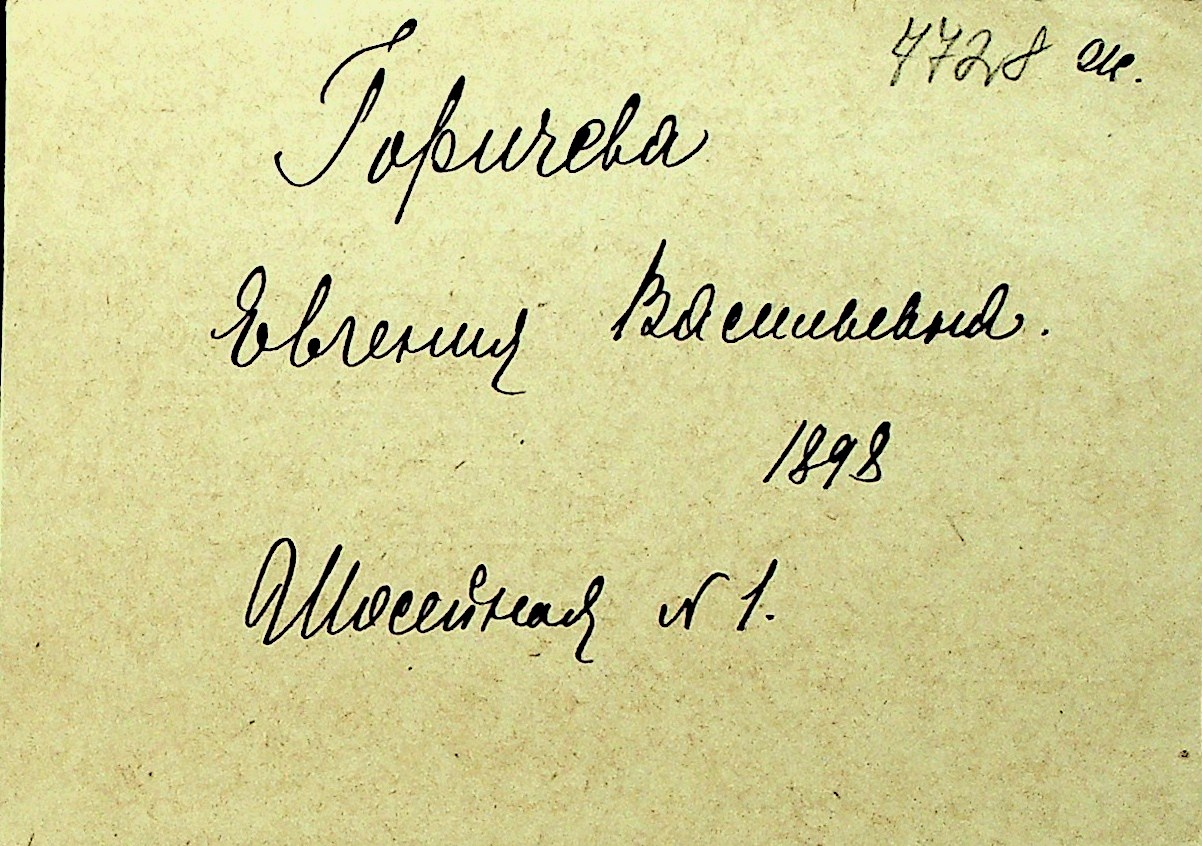 4728 ж.
Горичева
Евгения Васильевна.
1898
Шосейная N 1.